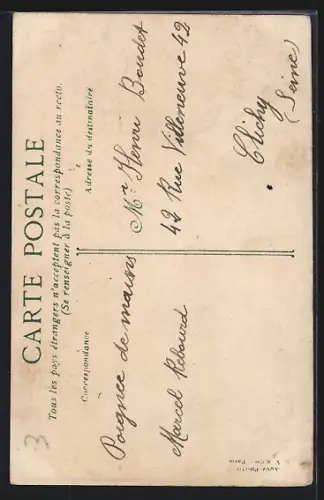 CARTE POSTALE
Tous les pays étrangers n'acceptent pas la correspondance au recto.
(Se renseigner à la poste)
Correspondance
Adresse du destinataire
Poignée de mains
Marcel Rebourd
Mr Henri Boudet
42 Rue Villeneuve 42
Clichy
(Seine)
Paris
3